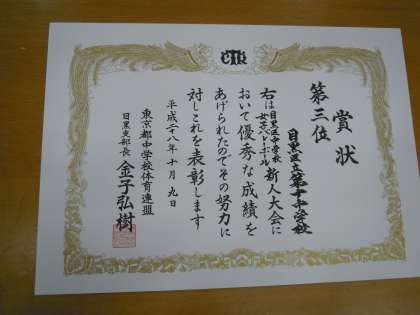 CTK
賞状
第三位
目黒区立第十中学校
右は目黒区中学校
女子バレーボール
新人大会に
おいて優秀な成績を
あげられたのでその努力に
対しこれを表彰します
平成二十八年十月九日
東京都中学校体育連盟
目黒支部長 金子弘樹